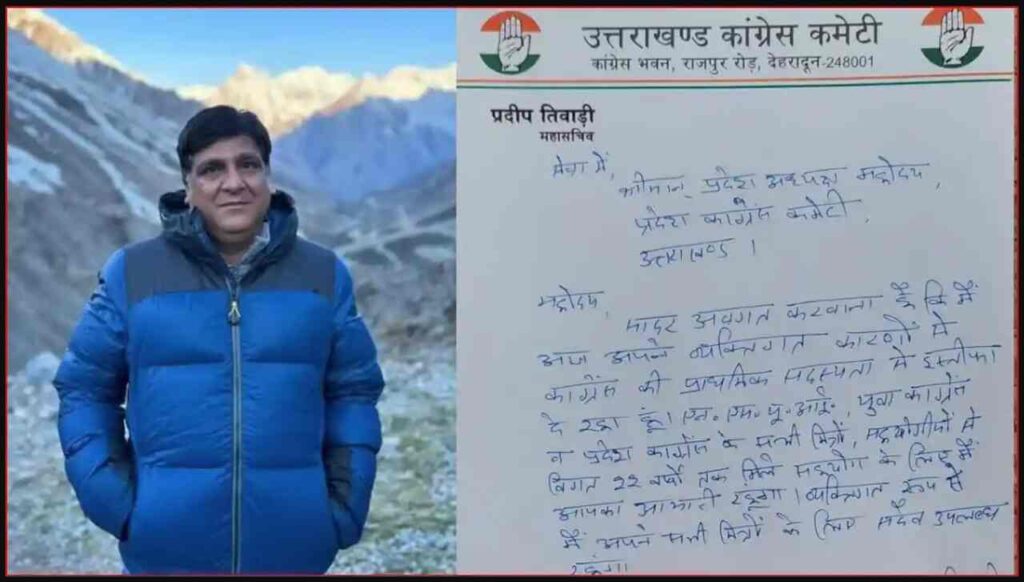 उत्तराखण्ड कांग्रेस कमेटी
कांग्रेस भवन, राजपुर रोड़, देहरादून-248001
प्रदीप तिवाड़ी
महासचिव
सेवा में,
श्रीमान प्रदेश अध्यक्ष महोदय,
प्रदेश कांग्रेस कमेटी,
उत्तराखण्ड ।
महोदय,
सादर अवगत करवाना है कि मैं
आज अपने व्यक्तिगत कारणों से
कांग्रेस की प्राथमिक सदस्यता से इस्तीफा
दे रहा हूं। एन. एस. यू. आई., युवा कांग्रेस
व प्रदेश कांग्रेस के सभी मित्रों, सहयोगीयों से
विगत 22 वर्षों तक मिले सहयोग के लिए मैं
आपका आभारी रहूंगा । व्यक्तिगत रूप से
मैं अपने सभी मित्रों के लिए सदैव उपलब्ध
रहूंगा।